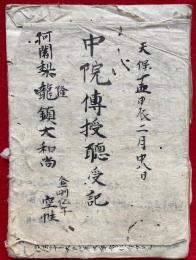 天保十五甲辰二月八日
中院傳授聴受記
阿闍梨龍鎮大和尚
隆
金剛仏子
空